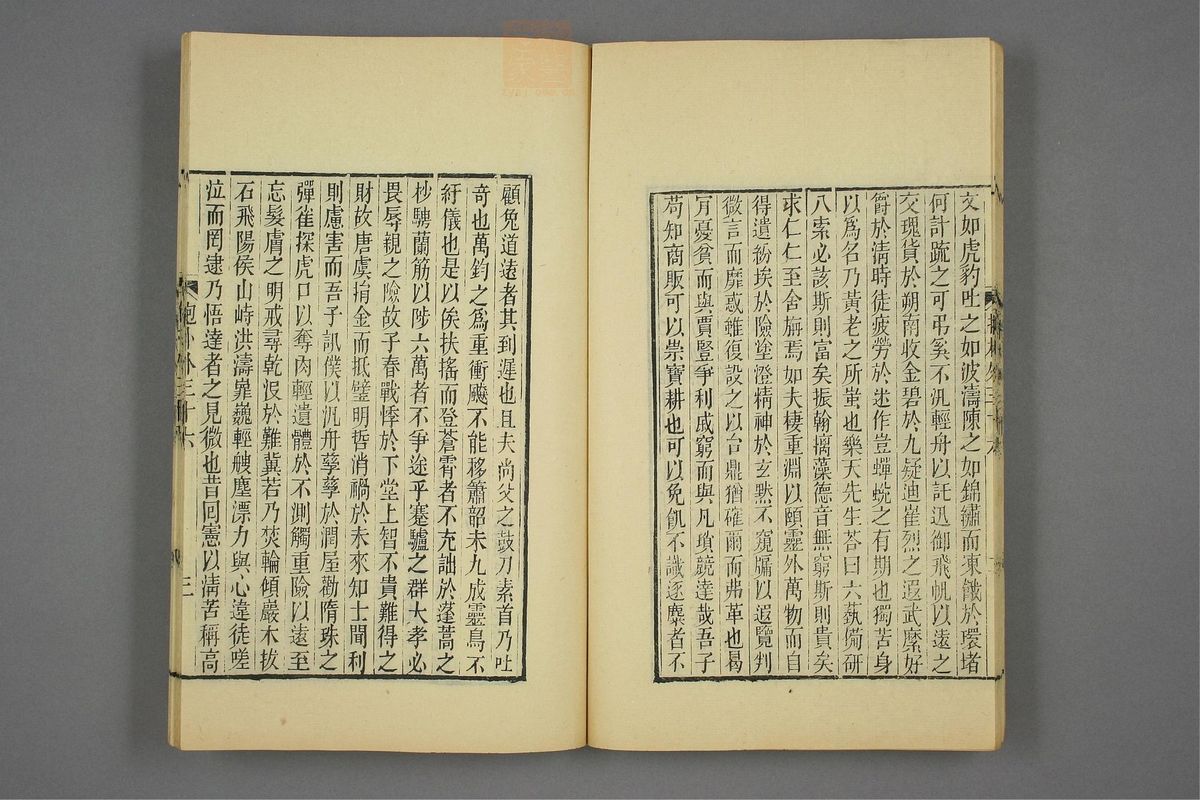 文如虎豹吐之如波濤陳之如錦繡而凍餓於環堵
何計疏之可弔奚不汎輕舟以託迅御飛帆以遠之
交瑰貨於朔南收金碧於九疑迪崔烈之遐武縻好
爵於淸時徒疲勞於述作豈蟬蛻之有期也獨苦身
以爲名乃黃老之所蚩也樂天先生荅曰六藝備研
八索必該斯則富矣振翰摛藻德音無窮斯則貴矣
求仁仁至舍旃焉如夫棲重淵以頤靈外萬物而自
得遺紛埃於險塗澄精神於玄默不窺牖以遐覽判
微言而靡惑雖復設之以台鼎猶確爾而弗革也曷
肎憂貧而與賈豎爭利戚窮而與凡瑣競達哉吾子
苟知商販可以崇寶耕也可以免飢不識逐麋者不
顧兔道遠者其到遲也且夫尚父之鼓刀素首乃吐
奇也萬鈞之爲重衝飈不能移簫韶未九成靈鳥不
紆儀也是以俟扶搖而登蒼霄者不充詘於蓬蒿之
杪騁蘭筋以陟六萬者不爭途乎蹇驢之群大孝必
畏辱親之險故子春戰悸於下堂上智不貴難得之
財故唐虞捐金而抵璧明哲消禍於未來知士聞利
則慮害而吾子訊僕以汎舟孳孳於潤屋勸隋珠之
彈雀探虎口以奪肉輕遺體於不測觸重險以遠至
忘髮膚之明戒尋乾沒於難冀若乃焚輪傾巖木拔
石飛陽侯山峙洪濤嶵巍輕艘塵漂力與心違徒嗟
泣而罔逮乃悟達者之見微也昔回憲以淸苦稱高
抱朴外三十六
三